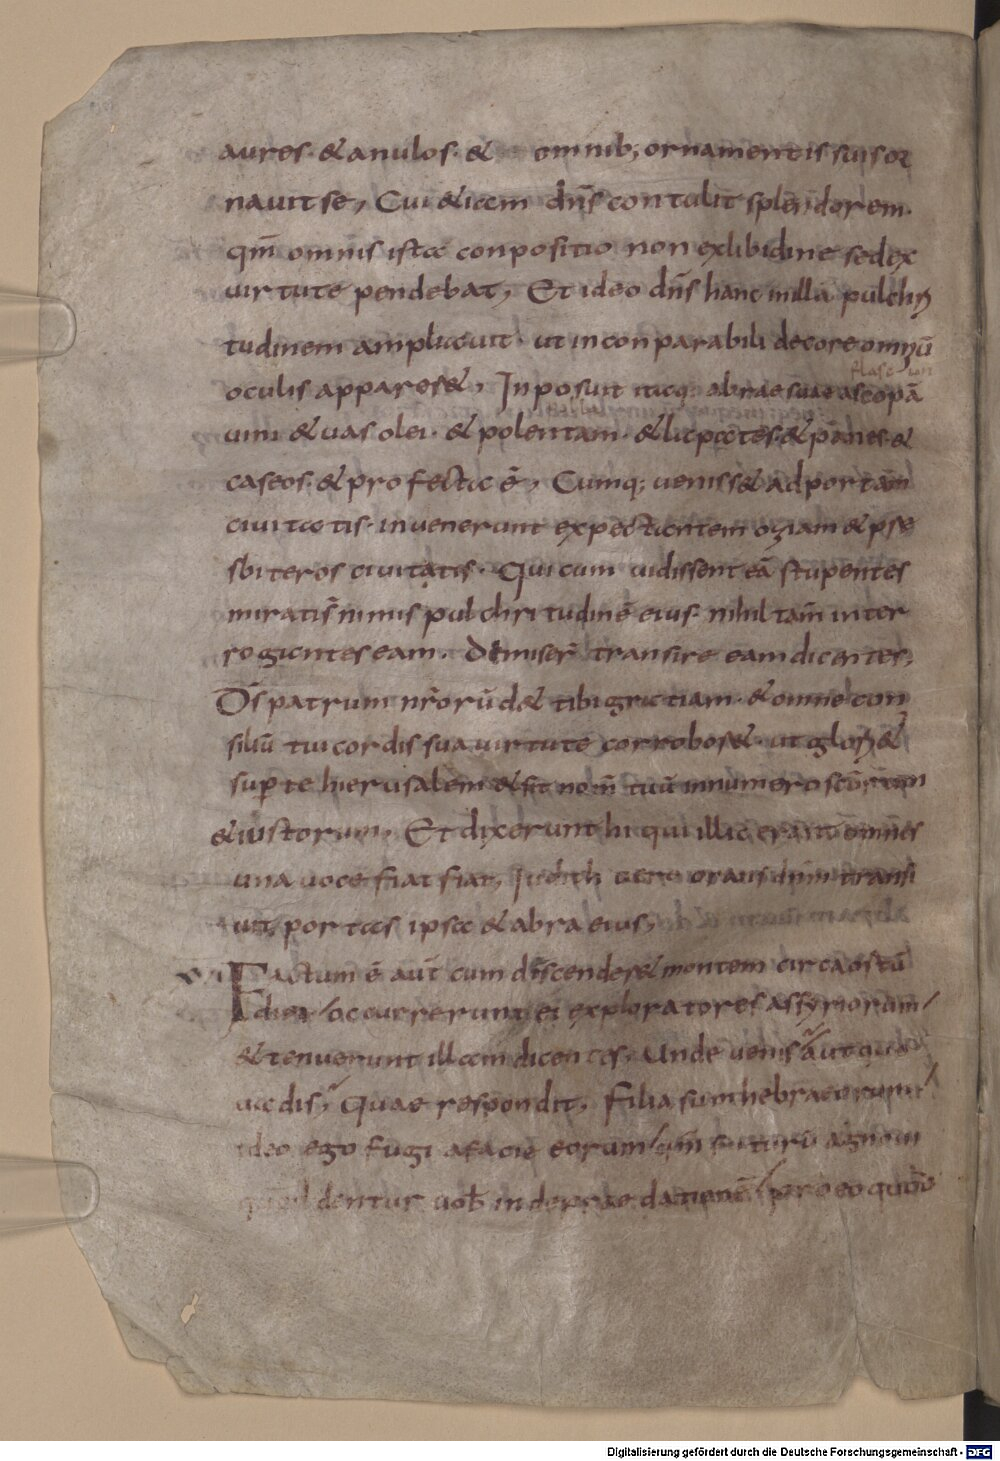 aures· &anulos· & omnib; ornamentis suis or
nauit se, Cui &iam dn̄s contulit splendorem·
qm̄ omnis ista conpositio non exlibidine sedex
uirtute pendebat, Et ideo dn̄s hanc inilla pulchri
tudinem ampliauit· ut inconparabili decore omniū
oculis appareret&, Inposuit itaq; abrae suae ascopā
uini &uas olei· &polentam· &lapates·&panes·&
caseos·&profecta ē, Cumq; uenissent adportam
ciuitatis· inuenerunt expectantem oziam &pre
sbiteros ciuitatis· Qui cum uidissent eā stupentes
mirati s̄ nimis pulchritudinē eius· nihil tam̄ inter
rogantes eam· Dimiser̄ transire eam dicentes,
Ds̄ patrum nr̄orū d& tibi gratiam· &omne con
siliū tui cordis sua uirtute corrobor&· ut glori&
sup te hierusalem &sit nom̄ tuū innumero scōrum
&iustorum, Et dixerunt hi qui illic erant omnes
una uoce fiat fiat, Iudith uero orans dnm̄ transi
uit portas ipsa &abra eius,
Factum ē aut̄ cum discender& montem circa ortū
diei occurrerunt ei exploratores assyriorum
&tenuerunt illam dicentes, Unde uenis aut quo
uadis, Quae respondit, Filia sum hebraeorum
ideo ego fugi afacie eorum qm̄ futurū agnoui
quod dentur uob̄ in depraedationē pro eo quod
Digitalisierung gefördert durch die Deutsche Forschungsgemeinschaft - DFG